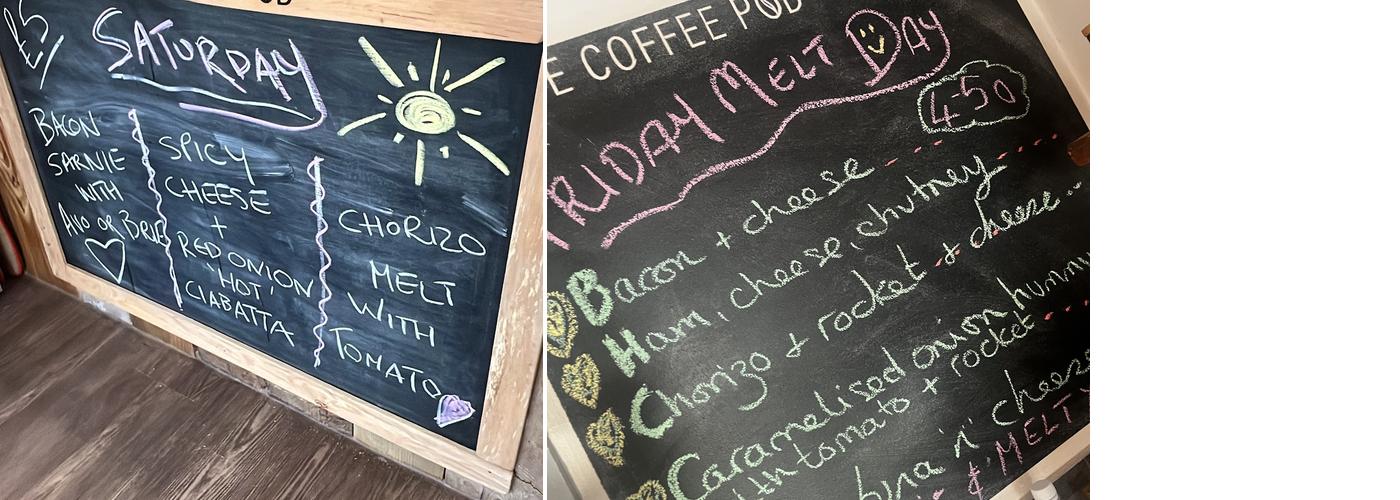 SATURDAY
BACON
SARNIE
WITH
AVO OR BRIE
SPICY
CHEESE
+
RED ONION
'HOT'
CIABATTA
CHORIZO
MELT
WITH
TOMATO
E COFFEE POD
FRIDAY MELT DAY
4-50
Bacon + cheese
Ham, cheese, chutney
Chorizo + rocket + cheese...
Caramelised onion hummu
tomato + rocket
'n' cheese
& MELT